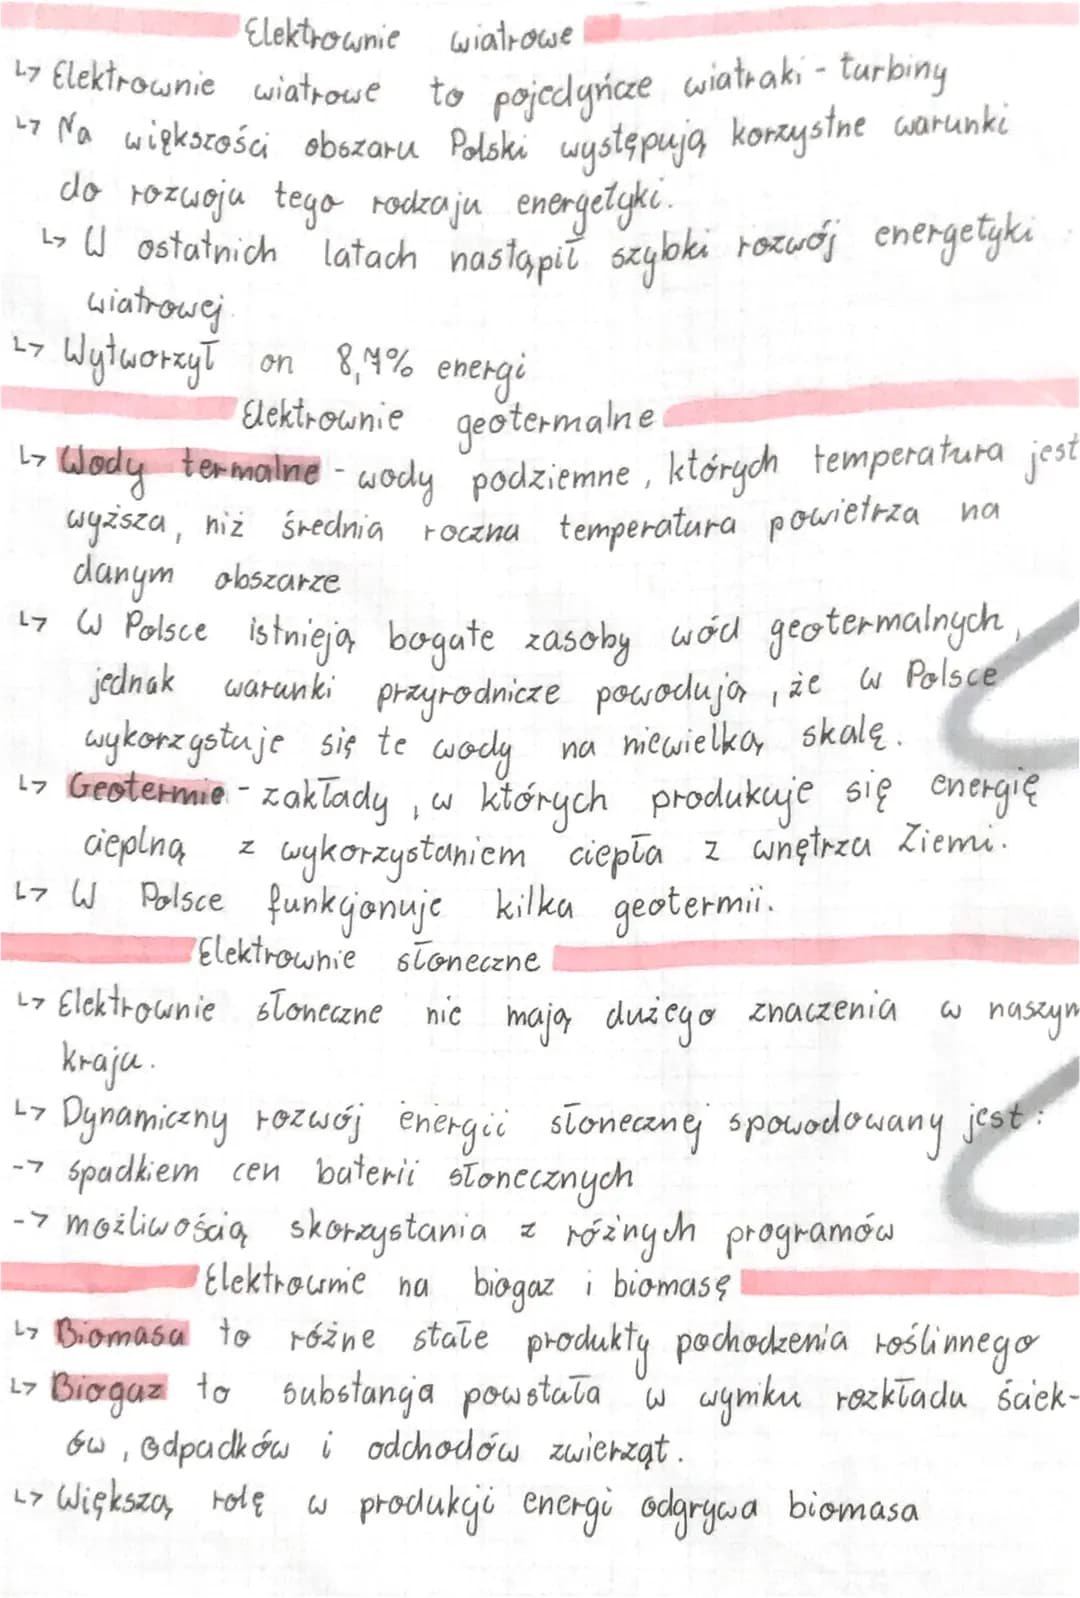 Elektrownie wiatrowe
↳ Elektrownie wiatrowe to pojedyńcze wiatraki - turbiny
↳ Na większości obszaru Polski występują korzystne warunki
do rozwoju tego rodzaju energetyki.
↳ W ostatnich latach nastąpił szybki rozwój energetyki
wiatrowej
↳ Wytworzył on 8,7% energi
Elektrownie geotermalne
↳ Wody termalne - wody podziemne, których temperatura jest
wyższa, niż średnia roczna temperatura powietrza na
danym obszarze
↳ W Polsce istnieją bogate zasoby wód geotermalnych,
jednak warunki przyrodnicze powodują, że w Polsce
wykorzystuje się te wody na niewielką skalę.
↳ Geotermie - zakłady, w których produkuje się energię
cieplną z wykorzystaniem ciepła z wnętrza Ziemi.
↳ W Polsce funkcjonuje kilka geotermii.
Elektrownie słoneczne
↳ Elektrownie słoneczne nie mają dużego znaczenia w naszym
kraju.
↳ Dynamiczny rozwój energii słonecznej spowodowany jest:
-> spadkiem cen baterii słonecznych
-> możliwością skorzystania z różnych programów
Elektrownie na biogaz i biomasę
↳ Biomasa to różne stałe produkty pochodzenia roślinnego
↳ Biogaz to substancja powstała w wyniku rozkładu ściek-
ów, odpadków i odchodów zwierząt.
↳ Większą rolę w produkcji energi odgrywa biomasa